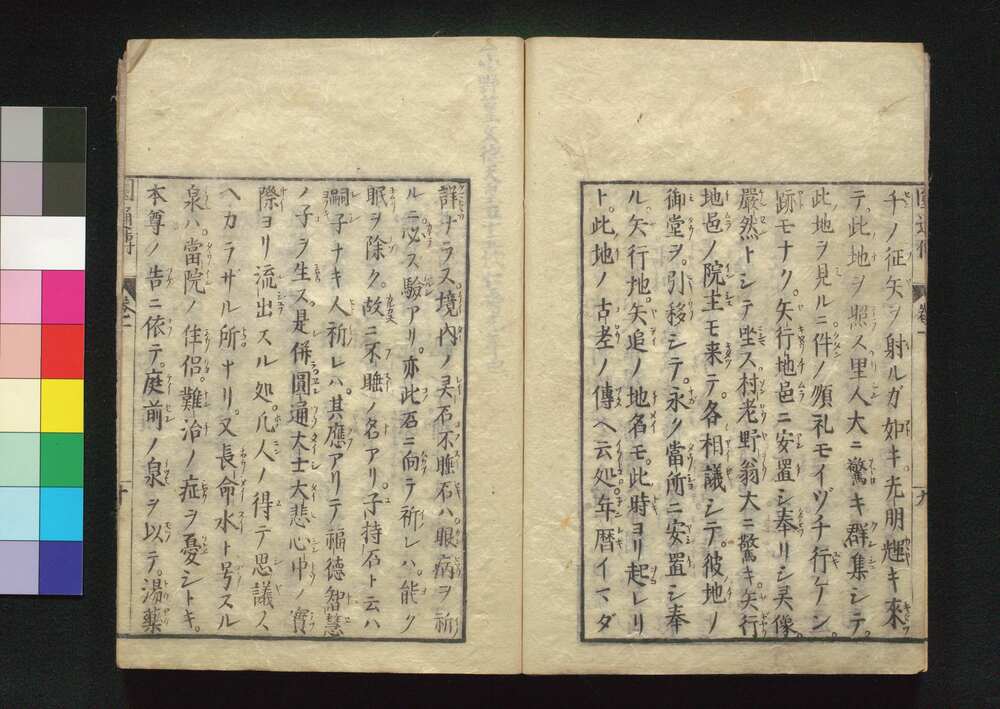 千ノ征矢ヲ射ルガ如キ光明輝キ來
テ此地ヲ照ス里人大ニ驚キ群集シテ。
此地ヲ見ルニ件ノ順礼モイヅチ行ケン。
跡モナク。矢行地邑ニ安置シ奉リシ㚑像。
嚴然トシテ坐ス村老野翁大ニ驚キ矢行
地邑ノ院主モ来テ。各相議シテ。彼地ノ
御堂ヲ。引移シテ。永ク當所ニ安置シ奉
ル矢行地。矢追ノ地名モ。此時ヨリ起レリ
ト。此地ノ古老ノ傳ヘ云処。年暦イマダ
詳ナラス境内ノ㚑石不睡石ハ眼病ヲ祈
ルニ必ス驗アリ。亦此石ニ向テ祈レハ能ク
眠ヲ除ク。故ニ不睡ノ名アリ。子持石ト云ハ
嗣子ナキ人祈レハ。其應アリテ福德智慧
ノ子ヲ生ス。是併圓通大士大悲心中ノ實
際ヨリ流出スル処。凡人ノ得テ思議ス
ヘカラザル所ナリ。又長命水ト号スル
泉ハ。當院ノ住侶。難治ノ症ヲ憂シトキ。
本尊ノ告ニ依テ。庭前ノ泉ヲ以テ。湯藥
圓通傳
卷一
十